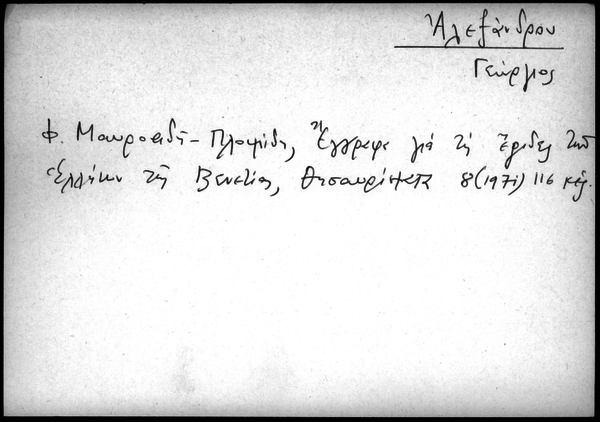 Ἀλεξάνδρου
Γεώργιος
Φ. Μαυροειδῆ - Πλουμίδη, Ἔγγραφα γιά τίς ἔριδες τῶν
Ἑλλήνων τῆς Βενετίας, Θησαυρίσματα 8 (1971) 116 κἑξ.